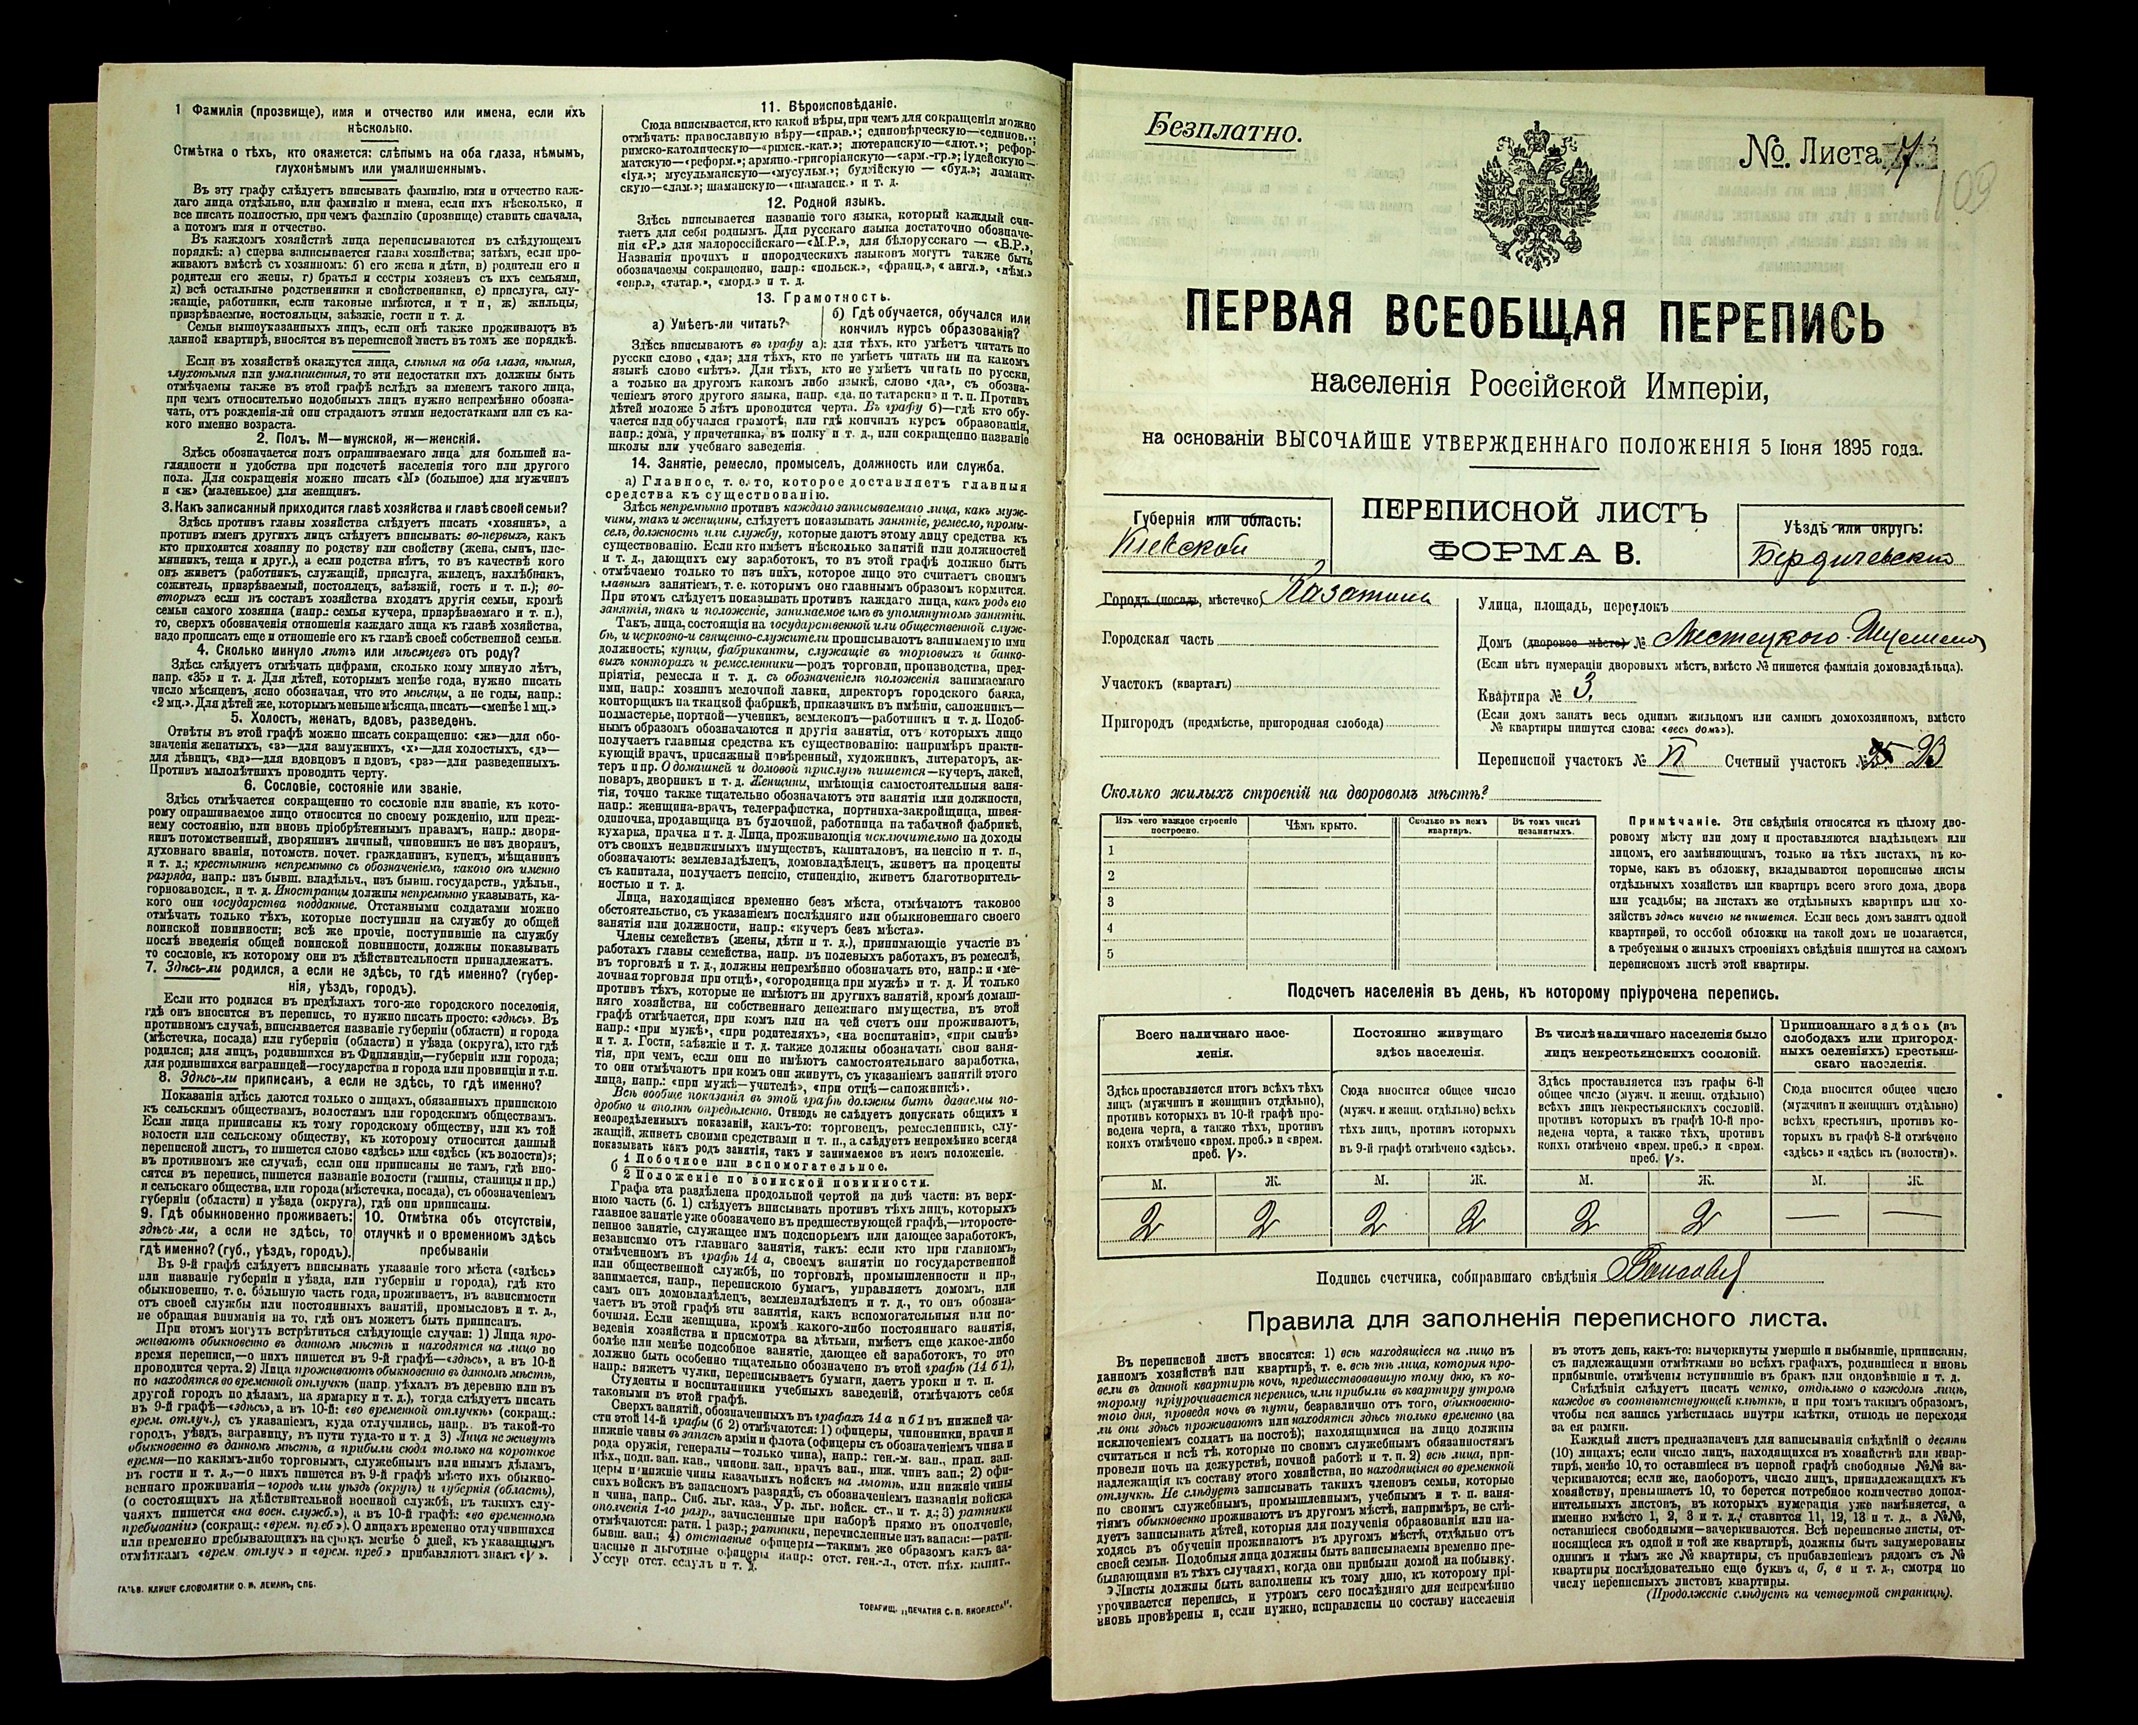 1 Фамилія (прозвище), имя и отчество или имена, если ихъ
нѣсколько.
Отмѣтка о тѣхъ, кто окажется: слѣпымъ на оба глаза, нѣмымъ,
глухонѣмымъ или умалишеннымъ.
Въ эту графу слѣдуетъ вписывать фамилію, имя и отчество каж-
даго лица отдѣльно, или фамилію и имена, если ихъ нѣсколько, и
все писать полностью, при чемъ фамилію (прозвище) ставить сначала,
а потомъ имя и отчество.
Въ каждомъ хозяйствѣ лица переписываются въ слѣдующемъ
порядкѣ: а) сперва записывается глава хозяйства; затѣмъ, если про-
живаютъ вмѣстѣ съ хозяиномъ: б) его жена и дѣти, в) родители его и
родители его жены, г) братья и сестры хозяевъ съ ихъ семьями,
д) всѣ остальные родственники и свойственники, е) прислуга, слу-
жащіе, работники, если таковые имѣются, и т п, ж) жильцы,
призрѣваемые, постояльцы, заѣзжіе, гости и т. п.
Семьи вышеуказанныхъ лицъ, если онѣ также проживаютъ въ
данной квартирѣ, вносятся въ переписной листъ въ томъ же порядкѣ.
Если въ хозяйствѣ окажутся лица, слѣпыя на оба глаза, нѣмыя,
глухонѣмыя или умалишенныя, то эти недостатки ихъ должны быть
отмѣчаемы также въ этой графѣ вслѣдъ за именемъ такого лица,
при чемъ относительно подобныхъ лицъ нужно непремѣнно обозна-
чать, отъ рожденія-ли они страдаютъ этими недостатками или съ ка-
кого именно возраста.
2. Полъ. М—мужской, ж—женскій.
Здѣсь обозначается полъ опрашиваемаго лица для большей на-
глядности и удобства при подсчетѣ населенія того или другого
пола. Для сокращенія можно писать «М» (большое) для мужчинъ
и «ж» (маленькое) для женщинъ.
3. Какъ записанный приходится главѣ хозяйства и главѣ своей семьи?
Здѣсь противъ главы хозяйства слѣдуетъ писать «хозяинъ», а
противъ именъ другихъ лицъ слѣдуетъ вписывать: во-первыхъ, какъ
кто приходится хозяину по родству или свойству (жена, сынъ, пле-
мянникъ, теща и друг.), а если родства нѣтъ, то въ качествѣ кого
онъ живетъ (работникъ, служащій, прислуга, жилецъ, нахлѣбникъ,
сожитель, призрѣваемый, постоялецъ, заѣзжій, гость и т. п.); во-
вторыхъ если въ составъ хозяйства входятъ другія семьи, кромѣ
семьи самого хозяина (напр.: семья кучера, призрѣваемаго и т. п.),
то, сверхъ обозначенія отношенія каждаго лица къ главѣ хозяйства,
надо прописать еще и отношеніе его къ главѣ своей собственной семьи.
4. Сколько минуло лѣтъ или мѣсяцевъ отъ роду?
Здѣсь слѣдуетъ отмѣчать цифрами, сколько кому минуло лѣтъ,
напр. «35» и т. д. Для дѣтей, которымъ менѣе года, нужно писать
число мѣсяцевъ, ясно обозначая, что это мѣсяцы, а не годы, напр.:
«2 мц.». Для дѣтей же, которымъ меньше мѣсяца, писать—«менѣе 1 мц.»
5. Холостъ, женатъ, вдовъ, разведенъ.
Отвѣты въ этой графѣ можно писать сокращенно: «ж»—для обо-
значенія женатыхъ, «з»—для замужнихъ, «х»—для холостыхъ, «д»—
для дѣвицъ, «вд»—для вдовцовъ и вдовъ, «рз»—для разведенныхъ.
Противъ малолѣтнихъ проводить черту.
6. Сословіе, состояніе или званіе.
Здѣсь отмѣчается сокращенно то сословіе или званіе, къ кото-
рому опрашиваемое лицо относится по своему рожденію, или преж-
нему состоянію, или вновь пріобрѣтеннымъ правамъ, напр.: дворя-
нинъ потомственный, дворянинъ личный, чиновникъ не изъ дворянъ,
духовнаго званія, потомств. почет. гражданинъ, купецъ, мѣщанинъ
и т. д.; крестьянинъ непремѣнно съ обозначеніемъ, какого онъ именно
разряда, напр.: изъ бывш. владѣльч., изъ бывш. государств., удѣльн.,
горнозаводск., и т. д. Иностранцы должны непремѣнно указывать, ка-
кого они государства подданные. Отставными солдатами можно
отмѣчать только тѣхъ, которые поступили на службу до общей
воинской повинности; всѣ же прочіе, поступившіе на службу
послѣ введенія общей воинской повинности, должны показывать
то сословіе, къ которому они въ дѣйствительности принадлежатъ.
7. Здѣсь-ли родился, а если не здѣсь, то гдѣ именно? (губер-
нія, уѣздъ, городъ).
Если кто родился въ предѣлахъ того-же городского поселенія,
гдѣ онъ вносится въ перепись, то нужно писать просто: «здѣсь». Въ
противномъ случаѣ, вписывается названіе губерніи (области) и города
(мѣстечка, посада) или губерніи (области) и уѣзда (округа), кто гдѣ
родился; для лицъ, родившихся въ Финляндіи,—губерніи или города;
для родившихся заграницей—государства и города или провинціи и т.п.
8. Здѣсь-ли приписанъ, а если не здѣсь, то гдѣ именно?
Показанія здѣсь даются только о лицахъ, обязанныхъ припискою
къ сельскимъ обществамъ, волостямъ или городскимъ обществамъ.
Если лица приписаны къ тому городскому обществу, или къ той
волости или сельскому обществу, къ которому относится данный
переписной листъ, то пишется слово «здѣсь» или «здѣсь (къ волости)»;
въ противномъ же случаѣ, если они приписаны не тамъ, гдѣ вно-
сятся въ перепись, пишется названіе волости (гмины, станицы и пр.)
и сельскаго общества, или города (мѣстечка, посада), съ обозначеніемъ
губерніи (области) и уѣзда (округа), гдѣ они приписаны.
9. Гдѣ обыкновенно проживаетъ:
здѣсь-ли, а если не здѣсь, то
гдѣ именно? (губ., уѣздъ, городъ).
10. Отмѣтка объ отсутствіи,
отлучкѣ и о временномъ здѣсь
пребываніи
Въ 9-й графѣ слѣдуетъ вписывать указаніе того мѣста («здѣсь»
или названіе губерніи и уѣзда, или губерніи и города), гдѣ кто
обыкновенно, т. е. бо́льшую часть года, проживаетъ, въ зависимости
отъ своей службы или постоянныхъ занятій, промысловъ и т. д.,
не обращая вниманія на то, гдѣ онъ можетъ быть приписанъ.
При этомъ могутъ встрѣтиться слѣдующіе случаи: 1) Лица про-
живаютъ обыкновенно въ данномъ мѣстѣ и находятся на лицо во
время переписи,—о нихъ пишется въ 9-й графѣ—«здѣсь», а въ 10-й
проводится черта. 2) Лица проживаютъ обыкновенно въ данномъ мѣстѣ,
но находятся во временной отлучкѣ (напр. уѣхалъ въ деревню или въ
другой городъ по дѣламъ, на ярмарку и т. д.), тогда слѣдуетъ писать
въ 9-й графѣ—«здѣсь», а въ 10-й: «во временной отлучкѣ» (сокращ.:
врем. отлуч.), съ указаніемъ, куда отлучились, напр.. въ такой-то
городъ, уѣздъ, заграницу, въ пути туда-то и т. д 3) Лица не живутъ
обыкновенно въ данномъ мѣстѣ, а прибыли сюда только на короткое
время—по какимъ-либо торговымъ, служебнымъ или инымъ дѣламъ,
въ гости и т. д.,—о нихъ пишется въ 9-й графѣ мѣсто ихъ обыкно-
веннаго проживанія—городъ или уѣздъ (округъ) и губернія (область),
(о состоящихъ на дѣйствительной военной службѣ, въ такихъ слу-
чаяхъ пишется «на воен. служб.»), а въ 10-й графѣ: «во временномъ
пребываніи» (сокращ.: «врем. преб.»). О лицахъ временно отлучившихся
или временно пребывающихъ на срокъ менѣе 5 дней, къ указаннымъ
отмѣткамъ «врем. отлуч.» и «врем. преб.» прибавляютъ знакъ «V».
ГАЛЬВ. КЛИШЕ СЛОВОЛИТНИ О. И. ЛЕМАНЪ, СПБ.
11. Вѣроисповѣданіе.
Сюда вписывается, кто какой вѣры, при чемъ для сокращенія можно
отмѣчать: православную вѣру—«прав.»; единовѣрческую—«единов.»;
римско-католическую—«римск.-кат.»; лютеранскую—«лют.»; рефор-
матскую—«реформ.»; армяно-григоріанскую—«арм.-гр.»; іудейскую—
«іуд.»; мусульманскую—«мусульм.»; буддійскую — «буд.»; ламаит-
скую—«лам.»; шаманскую—«шаманск.» и т. д.
12. Родной языкъ.
Здѣсь вписывается названіе того языка, который каждый счи-
таетъ для себя роднымъ. Для русскаго языка достаточно обозначе-
нія «Р.» для малороссійскаго—«М.Р.», для бѣлорусскаго — «Б.Р.»,
Названія прочихъ и инородческихъ языковъ могутъ также быть
обозначаемы сокращенно, напр.: «польск.», «франц.», « англ.», «нѣм.»
«евр.», «татар.», «морд.» и т. д.
13. Грамотность.
а) Умѣетъ-ли читать?
б) Гдѣ обучается, обучался или
кончилъ курсъ образованія?
Здѣсь вписываютъ въ графу а): для тѣхъ, кто умѣетъ читать по
русски слово «да»; для тѣхъ, кто не умѣетъ читать ни на какомъ
языкѣ слово «нѣтъ». Для тѣхъ, кто не умѣетъ читать по русски,
а только на другомъ какомъ либо языкѣ, слово «да», съ обозна-
ченіемъ этого другого языка, напр. «да, по татарски» и т. п. Противъ
дѣтей моложе 5 лѣтъ проводится черта. Въ графу б)—гдѣ кто обу-
чается или обучался грамотѣ, или гдѣ кончилъ курсъ образованія,
напр.: дома, у причетника, въ полку и т. д., или сокращенно названіе
школы или учебнаго заведенія.
14. Занятіе, ремесло, промыселъ, должность или служба.
а) Главное, т. е. то, которое доставляетъ главныя
средства къ существованію.
Здѣсь непремѣнно противъ каждаго записываемаго лица, какъ муж-
чины, такъ и женщины, слѣдуетъ показывать занятіе, ремесло, промы-
селъ, должность или службу, которые даютъ этому лицу средства къ
существованію. Если кто имѣетъ нѣсколько занятій или должностей
и т. д., дающихъ ему заработокъ, то въ этой графѣ должно быть
отмѣчаемо только то изъ нихъ, которое лицо это считаетъ своимъ
главнымъ занятіемъ, т. е. которымъ оно главнымъ образомъ кормится.
При этомъ слѣдуетъ показывать противъ каждаго лица, какъ родъ его
занятія, такъ и положеніе, занимаемое имъ въ упомянутомъ занятіи.
Такъ, лица, состоящія на государственной или общественной служ-
бѣ, и церковно-и священно-служители прописываютъ занимаемую ими
должность; купцы, фабриканты, служащіе въ торговыхъ и банко-
выхъ конторахъ и ремесленники—родъ торговли, производства, пред-
пріятія, ремесла и т. д. съ обозначеніемъ положенія занимаемаго
ими, напр.: хозяинъ мелочной лавки, директоръ городского банка,
конторщикъ на ткацкой фабрикѣ, приказчикъ въ имѣніи, сапожникъ—
подмастерье, портной—ученикъ, землекопъ—работникъ и т. д. Подоб-
нымъ образомъ обозначаются и другія занятія, отъ которыхъ лицо
получаетъ главныя средства къ существованію: напримѣръ практи-
кующій врачъ, присяжный повѣренный, художникъ, литераторъ, ак-
теръ и пр. О домашней и домовой прислугѣ пишется—кучеръ, лакей,
поваръ, дворникъ и т. д. Женщины, имѣющія самостоятельныя заня-
тія, точно также тщательно обозначаютъ эти занятія или должности,
напр.: женщина-врачъ, телеграфистка, портниха-закройщица, швея-
одиночка, продавщица въ булочной, работница на табачной фабрикѣ,
кухарка, прачка и т. д. Лица, проживающія исключительно на доходы
отъ своихъ недвижимыхъ имуществъ, капиталовъ, на пенсію и т. п.,
обозначаютъ: землевладѣлецъ, домовладѣлецъ, живетъ на проценты
съ капитала, получаетъ пенсію, стипендію, живетъ благотворитель-
ностью и т. д.
Лица, находящіяся временно безъ мѣста, отмѣчаютъ таковое
обстоятельство, съ указаніемъ послѣдняго или обыкновеннаго своего
занятія или должности, напр.: «кучеръ безъ мѣста».
Члены семействъ (жены, дѣти и т. д.), принимающіе участіе въ
работахъ главы семейства, напр. въ полевыхъ работахъ, въ ремеслѣ,
въ торговлѣ и т. д., должны непремѣнно обозначать это, напр.: и «ме-
лочная торговля при отцѣ», «огородница при мужѣ» и т. д. И только
противъ тѣхъ, которые не имѣютъ ни другихъ занятій, кромѣ домаш-
няго хозяйства, ни собственнаго денежнаго имущества, въ этой
графѣ отмѣчается, при комъ или на чей счетъ они проживаютъ,
напр.: «при мужѣ», «при родителяхъ», «на воспитаніи», «при сынѣ»
и т. д. Гости, заѣзжіе и т. д. также должны обозначать свои заня-
тія, при чемъ, если они не имѣютъ самостоятельнаго заработка,
то они отмѣчаютъ при комъ они живутъ, съ указаніемъ занятій этого
лица, напр.: «при мужѣ—учителѣ», «при отцѣ—сапожникѣ».
Всѣ вообще показанія въ этой графѣ должны быть даваемы по-
дробно и вполнѣ опредѣленно. Отнюдь не слѣдуетъ допускать общихъ и
неопредѣленныхъ показаній, какъ-то: торговецъ, ремесленникъ, слу-
жащій, живетъ своими средствами и т. п., а слѣдуетъ непремѣнно всегда
показывать какъ родъ занятія, такъ и занимаемое въ немъ положеніе.
б 1 Побочное или вспомогательное.
2 Положеніе по воинской повинности.
Графа эта раздѣлена продольной чертой на двѣ части: въ верх-
нюю часть (б. 1) слѣдуетъ вписывать противъ тѣхъ лицъ, которыхъ
главное занятіе уже обозначено въ предшествующей графѣ,—второсте-
пенное занятіе, служащее имъ подспорьемъ или дающее заработокъ,
независимо отъ главнаго занятія, такъ: если кто при главномъ,
отмѣченномъ въ графѣ 14 а, своемъ занятіи по государственной
или общественной службѣ, по торговлѣ, промышленности и пр.,
занимается, напр., перепискою бумагъ, управляетъ домомъ, или
самъ онъ домовладѣлецъ, землевладѣлецъ и т. д., то онъ обозна-
чаетъ въ этой графѣ эти занятія, какъ вспомогательныя или по-
бочныя. Если женщина, кромѣ какого-либо постояннаго занятія,
веденія хозяйства и присмотра за дѣтьми, имѣетъ еще какое-либо
болѣе или менѣе подсобное занятіе, дающее ей заработокъ, то это
должно быть особенно тщательно обозначено въ этой графѣ (14 б 1),
напр.: вяжетъ чулки, переписываетъ бумаги, даетъ уроки и т. п.
Студенты и воспитанники учебныхъ заведеній, отмѣчаютъ себя
таковыми въ этой графѣ.
Сверхъ занятій, обозначенныхъ въ графахъ 14 а и б 1 въ нижней ча-
сти этой 14-й графы (б 2) отмѣчаются: 1) офицеры, чиновники, врачи и
нижніе чины въ запасѣ арміи и флота (офицеры съ обозначеніемъ чина и
рода оружія, генералы—только чина), напр.: ген.-м. зап., прап. зап.
пѣх., подп. зап. кав., чиновн. зап., врачъ зап., ниж. чинъ зап.; 2) офи-
церы и нижніе чины казачьихъ войскъ на льготѣ, или нижніе чины
сихъ войскъ въ запасномъ разрядѣ, съ обозначеніемъ названія войска
и чина, напр. Сиб. льг. каз., Ур. льг. войск. ст., и т. д.; 3) ратники
ополченія 1-го разр., зачисленные при наборѣ прямо въ ополченіе,
отмѣчаются: ратн. 1 разр.; ратники, перечисленные изъ запаса:—ратн.
бывш. зап.; 4) отставные офицеры—такимъ же образомъ какъ за-
пасные и льготные офицеры напр.: отст. ген.-л., отст. пѣх. капит.,
Уссур отст. есаулъ и т. д.
ТОВАРИЩ. „ПЕЧАТНЯ С. П. ЯКОВЛЕВА".
Безплатно.
№. Листа 7
109
ПЕРВАЯ ВСЕОБЩАЯ ПЕРЕПИСЬ
населенія Россійской Имперіи,
на основаніи ВЫСОЧАЙШЕ УТВЕРЖДЕННАГО ПОЛОЖЕНІЯ 5 Іюня 1895 года.
Губернія или область:
Кіевской
ПЕРЕПИСНОЙ ЛИСТЪ
ФОРМА В.
Уѣздъ или округъ:
Бердичевскій
Городъ (посадъ, мѣстечко) Казатинъ
Городская часть
Участокъ (кварталъ)
Пригородъ (предмѣстье, пригородная слобода)
Улица, площадь, переулокъ
Домъ (дворовое мѣсто) № Местецкого
(Если нѣтъ нумераціи дворовыхъ мѣстъ, вмѣсто № пишется фамилія домовладѣльца).
Квартира № 3.
(Если домъ занятъ весь однимъ жильцомъ или самимъ домохозяиномъ, вмѣсто
№ квартиры пишутся слова: «весь домъ»).
Переписной участокъ № II Счетный участокъ № 23
Сколько жилыхъ строеній на дворовомъ мѣстѣ?
Изъ чего каждое строеніе
построено.
Чѣмъ крыто.
Сколько въ немъ
квартиръ.
Въ томъ числѣ
незанятыхъ.
1
2
3
4
5
Примѣчаніе. Эти свѣдѣнія относятся къ цѣлому дво-
ровому мѣсту или дому и проставляются владѣльцемъ или
лицомъ, его замѣняющимъ, только на тѣхъ листахъ, въ ко-
торые, какъ въ обложку, вкладываются переписные листы
отдѣльныхъ хозяйствъ или квартиръ всего этого дома, двора
или усадьбы; на листахъ же отдѣльныхъ квартиръ или хо-
зяйствъ здѣсь ничего не пишется. Если весь домъ занятъ одной
квартирой, то особой обложки на такой домъ не полагается,
а требуемыя о жилыхъ строеніяхъ свѣдѣнія пишутся на самомъ
переписномъ листѣ этой квартиры.
Подсчетъ населенія въ день, къ которому пріурочена перепись.
Всего наличнаго насе-
ленія.
Постоянно живущаго
здѣсь населенія.
Въ числѣ наличнаго населенія было
лицъ некрестьянскихъ сословій.
Приписаннаго здѣсь (въ
слободахъ или пригород-
ныхъ селеніяхъ) крестьян-
скаго населенія.
Здѣсь проставляется итогъ всѣхъ тѣхъ
лицъ (мужчинъ и женщинъ отдѣльно),
противъ которыхъ въ 10-й графѣ про-
ведена черта, а также тѣхъ, противъ
коихъ отмѣчено «врем. преб.» и «врем.
преб. V».
Сюда вносится общее число
(мужч. и женщ. отдѣльно) всѣхъ
тѣхъ лицъ, противъ которыхъ
въ 9-й графѣ отмѣчено «здѣсь».
Здѣсь проставляется изъ графы 6-й
общее число (мужч. и женщ. отдѣльно)
всѣхъ лицъ некрестьянскихъ сословій.
противъ которыхъ въ графѣ 10-й про-
ведена черта, а также тѣхъ, противъ
коихъ отмѣчено «врем. преб.» и «врем.
преб. V».
Сюда вносится общее число
(мужчинъ и женщинъ отдѣльно)
всѣхъ крестьянъ, противъ ко-
торыхъ въ графѣ 8-й отмѣчено
«здѣсь» и «здѣсь къ (волости)».
М. Ж. М. Ж. М. Ж. М. Ж.
2 2 2 2 2 2 — —
Подпись счетчика, собиравшаго свѣдѣнія
Правила для заполненія переписного листа.
Въ переписной листъ вносятся: 1) всѣ находящіеся на лицо въ
данномъ хозяйствѣ или квартирѣ, т. е. всѣ тѣ лица, которыя про-
вели въ данной квартирѣ ночь, предшествовавшую тому дню, къ ко-
торому пріурочивается перепись, или прибыли въ квартиру утромъ
того дня, проведя ночь въ пути, безразлично отъ того, обыкновенно-
ли они здѣсь проживаютъ или находятся здѣсь только временно (за
исключеніемъ солдатъ на постоѣ); находящимися на лицо должны
считаться и всѣ тѣ, которые по своимъ служебнымъ обязанностямъ
провели ночь на дежурствѣ, ночной работѣ и т. п. 2) всѣ лица, при-
надлежащія къ составу этого хозяйства, но находящіяся во временной
отлучкѣ. Не слѣдуетъ записывать такихъ членовъ семьи, которые
по своимъ служебнымъ, промышленнымъ, учебнымъ и т. п. заня-
тіямъ обыкновенно проживаютъ въ другомъ мѣстѣ, напримѣръ, не слѣ-
дуетъ записывать дѣтей, которыя для полученія образованія или на-
ходясь въ обученіи проживаютъ въ другомъ мѣстѣ, отдѣльно отъ
своей семьи. Подобныя лица должны быть записываемы временно пре-
бывающими въ тѣхъ случаяхъ, когда они прибыли домой на побывку.
Листы должны быть заполнены къ тому дню, къ которому прі-
урочивается перепись, и утромъ сего послѣдняго дня непремѣнно
вновь провѣрены и, если нужно, исправлены по составу населенія
въ этотъ день, какъ-то: вычеркнуты умершіе и выбывшіе, приписаны,
съ надлежащими отмѣтками во всѣхъ графахъ, родившіеся и вновь
прибывшіе, отмѣчены вступившіе въ бракъ или овдовѣвшіе и т. д.
Свѣдѣнія слѣдуетъ писать четко, отдѣльно о каждомъ лицѣ,
каждое въ соотвѣтствующей клѣткѣ, и при томъ такимъ образомъ,
чтобы вся запись умѣстилась внутри клѣтки, отнюдь не переходя
за ея рамки.
Каждый листъ предназначенъ для записыванія свѣдѣній о десяти
(10) лицахъ; если число лицъ, находящихся въ хозяйствѣ или квар-
тирѣ, менѣе 10, то оставшіеся въ первой графѣ свободные №№ за-
черкиваются; если же, наоборотъ, число лицъ, принадлежащихъ къ
хозяйству, превышаетъ 10, то берется потребное количество допол-
нительныхъ листовъ, въ которыхъ нумерація уже намѣняется, а
именно вмѣсто 1, 2, 3 и т. д., ставится 11, 12, 13 и т. д., а №№,
оставшіеся свободными—зачеркиваются. Всѣ переписные листы, от-
носящіеся къ одной и той же квартирѣ, должны быть занумерованы
однимъ и тѣмъ же № квартиры, съ прибавленіемъ рядомъ съ №
квартиры послѣдовательно еще буквъ а, б, в и т. д., смотря по
числу переписныхъ листовъ квартиры.
(Продолженіе слѣдуетъ на четвертой страницѣ).